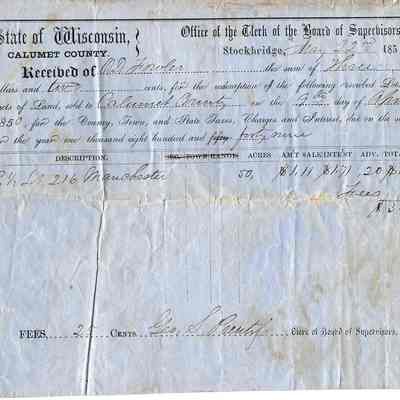 State of Wisconsin,
CALUMET COUNTY.
Office of the Clerk of the Board of Supervisors
Stockbridge, May 22nd 185
Received of O.D. Fowler the sum of Three
ollars and cents, for the redemption of the following described
cts of Land, sold to Calumet County on the day of
1850, for the County, Town, and State Taxes, Charges and Interest, due on the
the year one thousand eight hundred and fifty forty nine
DESCRIPTION. SEC. TOWN RANGE ACRES AM'T SALE INT'EST ADV. TOTA
216 Manchester 50, $1.11 $1.71 20
Fees
FEES, 25 CENTS. Geo. S. Clerk of Board of Supervisors,